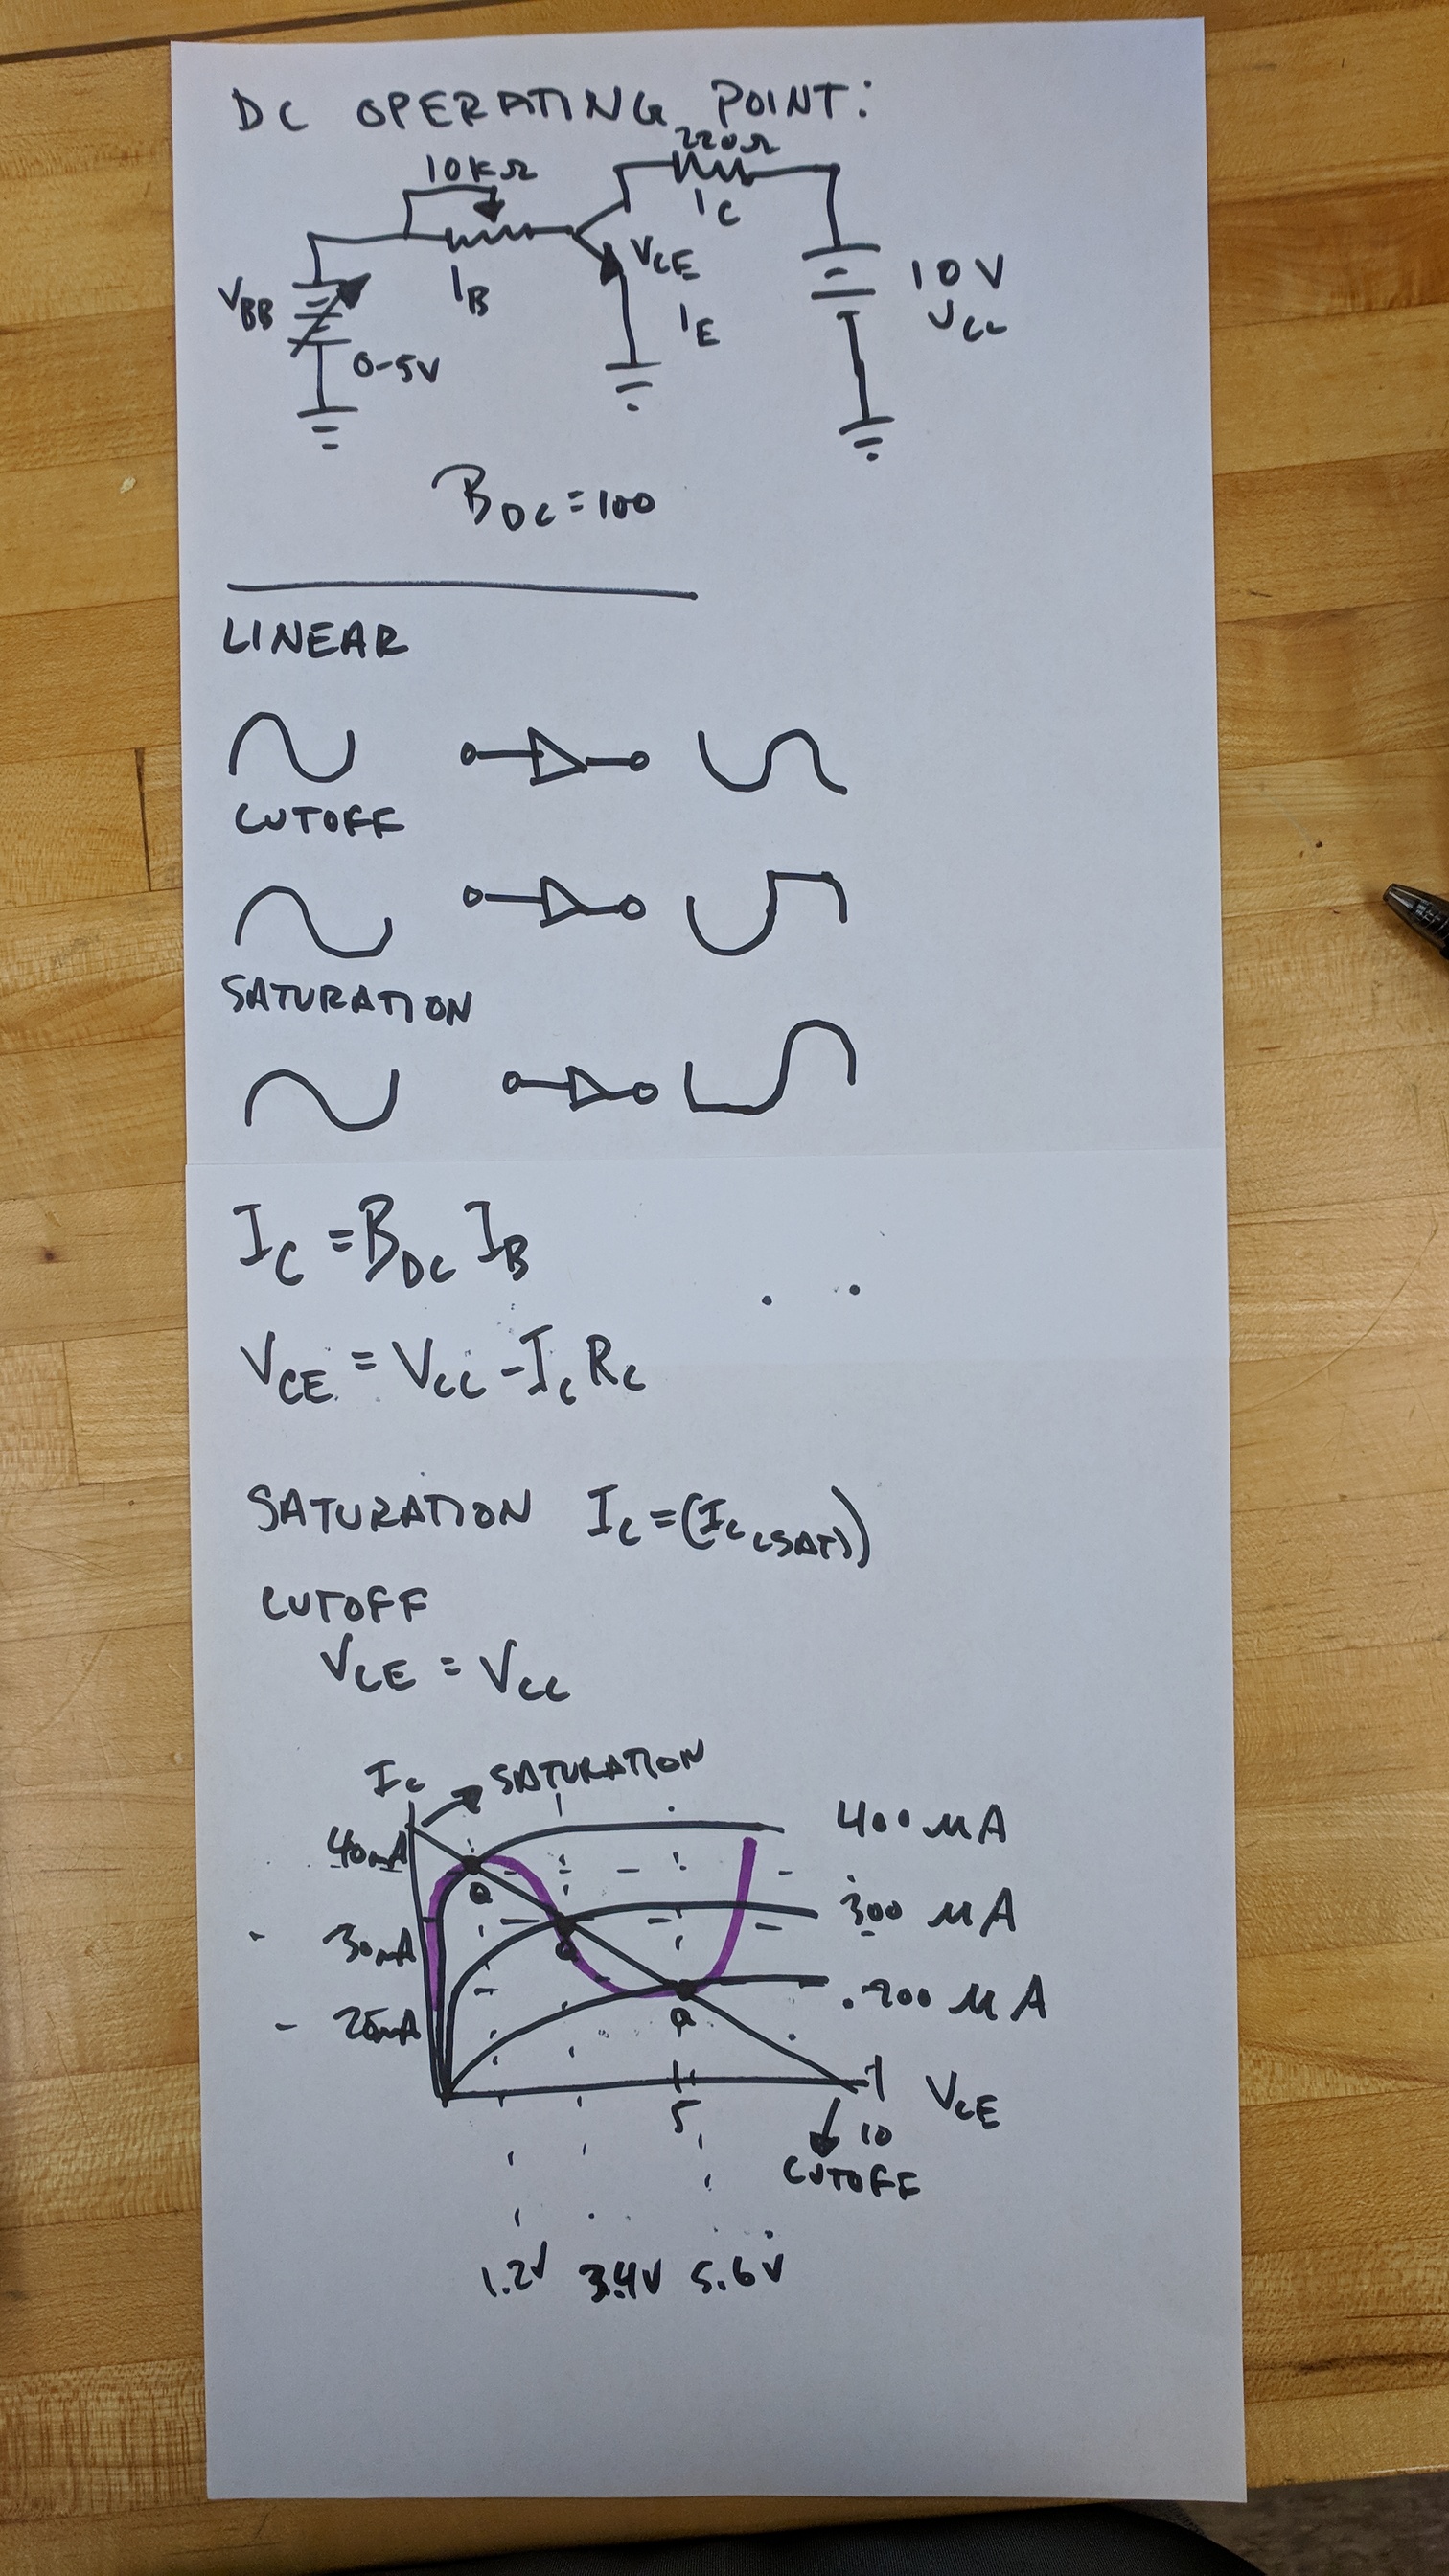 DC OPERATING POINT:
220Ω
10KΩ
I C
VCE
VBB
IB
IE
10V
VCC
0-5V
BDC=100
LINEAR
CUTOFF
SATURATION
IC = BDC IB
VCE = VCC - IC RC
SATURATION IC = (IC(SAT))
CUTOFF
VCE = VCC
IC
SATURATION
40mA
400 MA
Q
300 MA
30mA
Q
200 MA
Q
VCE
5
10
CUTOFF
1.2V 3.4V 5.6V